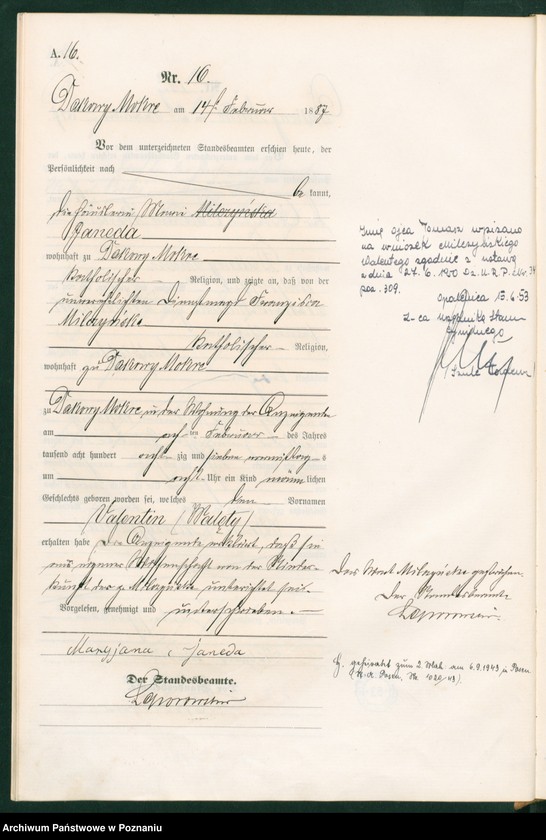 A. 16.
Nr. 16.
Dakowy Mokre am 14ten Februar 1887
Vor dem unterzeichneten Standesbeamten erschien heute, der
Persönlichkeit nach
be kannt,
die Häuslerin Marie Milczyńska
Janeda
wohnhaft zu Dakowy Mokre
katholischer Religion, und zeigte an, daß von der
unverehelichten Dienstmagd Franziska
Milczyńska
katholischer Religion,
wohnhaft zu Dakowy Mokre
zu Dakowy Mokre in der Wohnung der Anzeigende
am achten Februar des Jahres
tausend acht hundert acht zig und sieben vormittags
um acht Uhr ein Kind männlichen
Geschlechts geboren worden sei, welches den Vornamen
Valentin (Walęty)
erhalten habe. Die Anzeigende erklärt, daß sie
aus eigener Wissenschaft von der Nieder-
kunft der p. Milczyńska unterrichtet sei.
Vorgelesen, genehmigt und unterschrieben.
Maryjana Janeda
Der Standesbeamte.
Imię ojca Tomasz wpisano
na wniosek Milczyńskiego
Walentego zgodnie z ustawą
z dnia 27. 6. 1950 Dz. U. R. P. Nr. 34
poz. 309.
Opalenica 13. 6. 53
Z-ca Urzędnika Stanu
Cywilnego
Das Wort Milczyńska gestrichen.
Der Standesbeamte
H. geheiratet zum 2. Mal. am 6.9.1943 in Posen
(St. A. Posen, Nr. 1020/43).
Archiwum Państwowe w Poznaniu